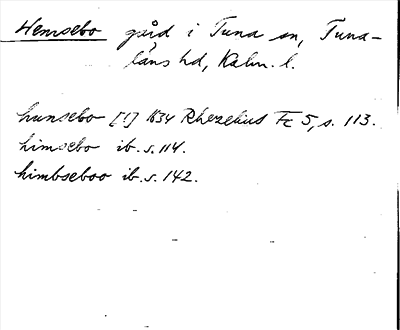 Hemsebo gård i Tuna sn, Tuna-
läns hd, Kalm. l.
hunsebo [!] 1634 Rhezelius Fc 5, s. 113.
himsebo ib. s. 114.
himbseboo ib. s. 142.